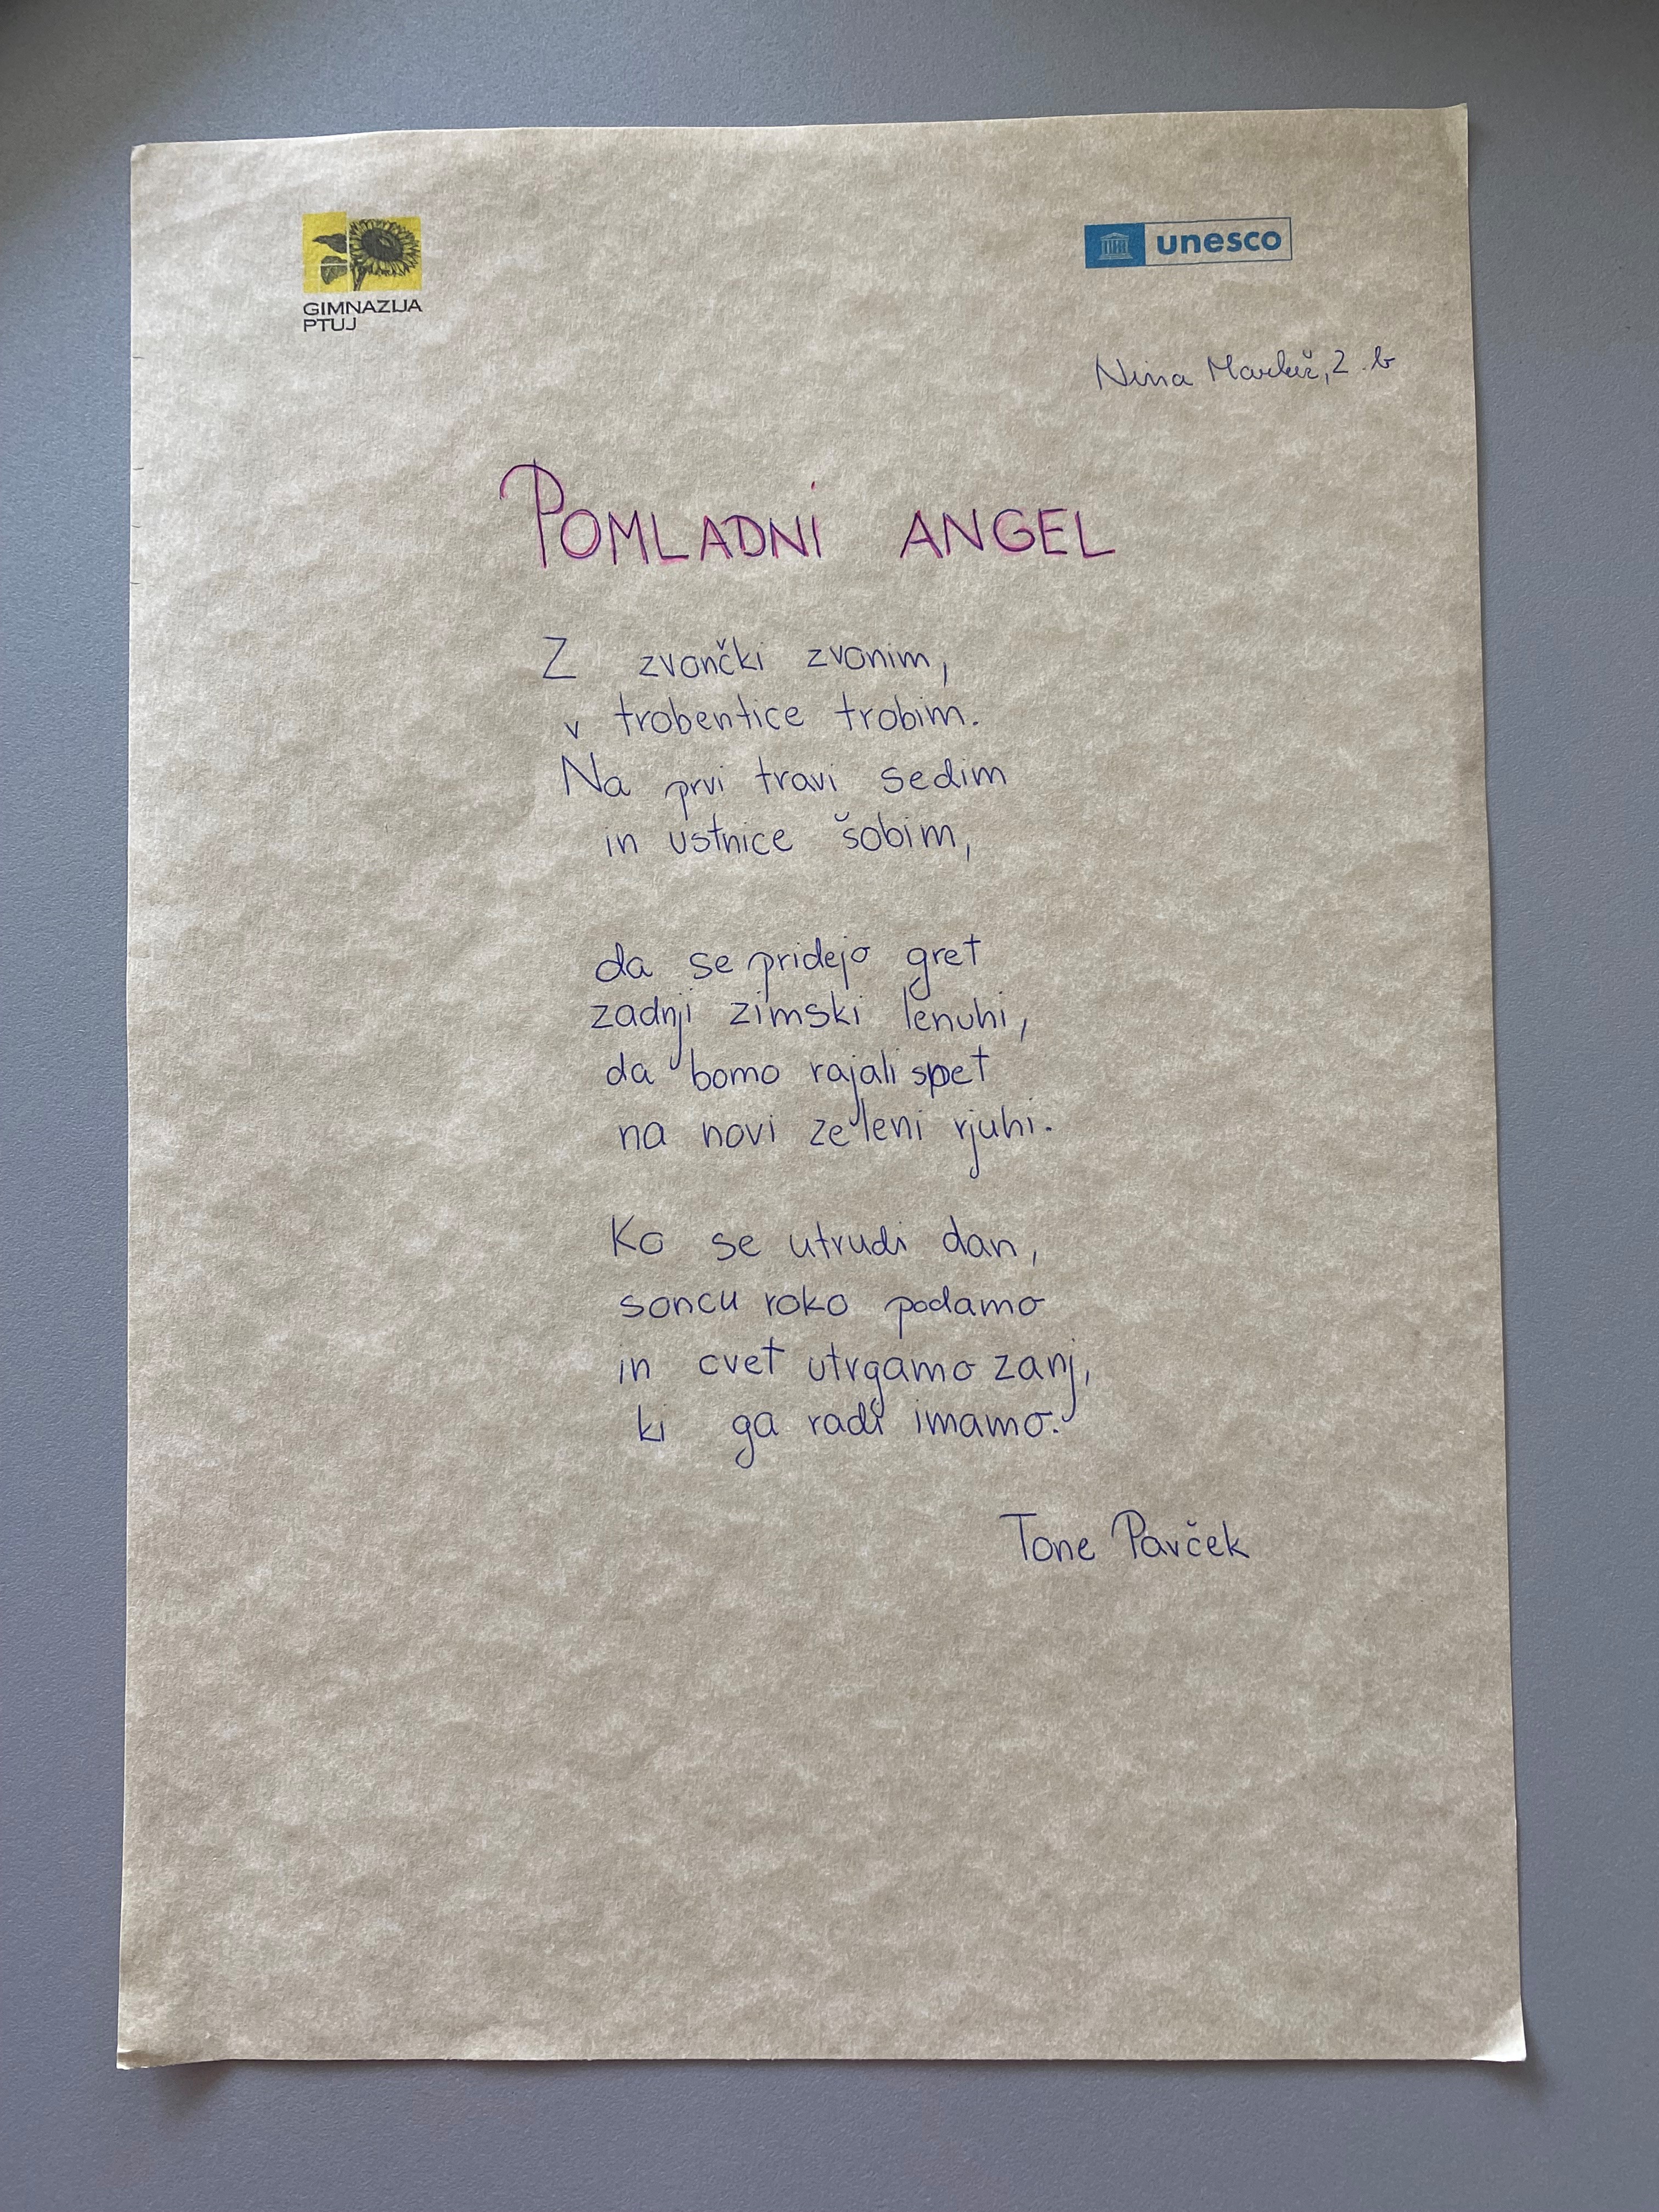 GIMNAZIJA
PTUJ
unesco
Nina 2. b
POMLADNI ANGEL
Z zvončki zvonim,
v trobentice trobim.
Na prvi travi sedim
in ustnice šobim,
da se pridejo gret
zadnji zimski lenuhi,
da bomo rajali spet
na novi zeleni rjuhi.
Ko se utrudi dan,
soncu roko podamo
in cvet utrgamo zanj,
ki ga radi imamo.
Tone Pavček